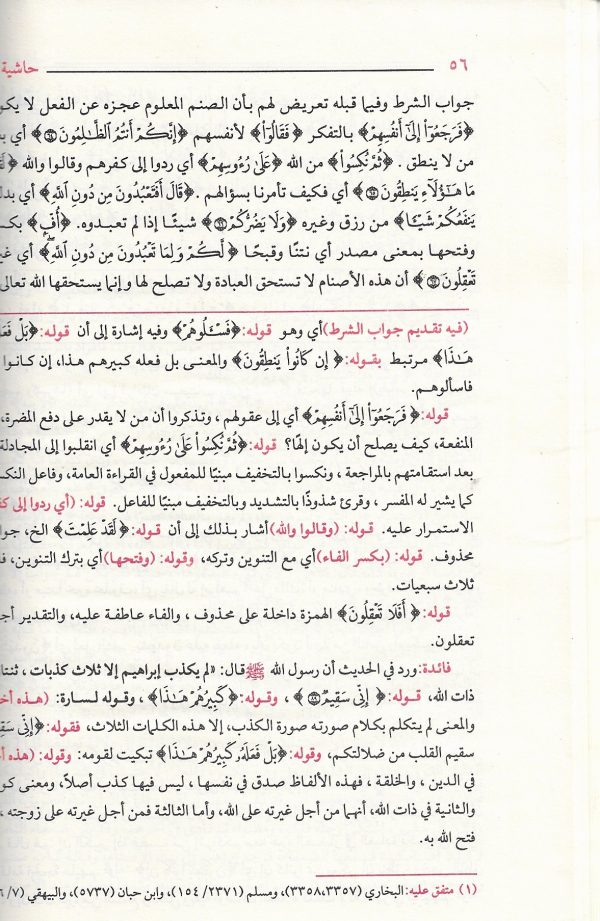 ٥٦ حاشية
جواب الشرط وفيما قبله تعريض لهم بأن الصنم المعلوم عجزه عن الفعل لا يكو
﴿فَرَجَعُوٓاْ إِلَىٰٓ أَنفُسِهِمْ﴾ بالتفكر ﴿فَقَالُوٓاْ﴾ لأنفسهم ﴿إِنَّكُمْ أَنتُمُ ٱلظَّـٰلِمُونَ ۝٦٤﴾ أي
من لا ينطق . ﴿ثُمَّ نُكِسُواْ﴾ من الله ﴿عَلَىٰ رُءُوسِهِمْ﴾ أي ردوا إلى كفرهم وقالوا والله
مَا هَـٰٓؤُلَآءِ يَنطِقُونَ ۝٦٥﴾ أي فكيف تأمرنا بسؤالهم . ﴿قَالَ أَفَتَعْبُدُونَ مِن دُونِ ٱللَّهِ﴾ أي بدل
يَنفَعُكُمْ شَيْـًٔا﴾ من رزق وغيره ﴿وَلَا يَضُرُّكُمْ ۝٦٦﴾ شيئًا إذا لم تعبدوه. ﴿أُفٍّ﴾ بك
وفتحها بمعنى مصدر أي نتنًا وقبحًا ﴿لَّكُمْ وَلِمَا تَعْبُدُونَ مِن دُونِ ٱللَّهِ﴾ أي غي
تَعْقِلُونَ ۝٦٧﴾ أن هذه الأصنام لا تستحق العبادة ولا تصلح لها وإنما يستحقها الله تعالى
(فيه تقديم جواب الشرط) أي وهو قوله: ﴿فَسْـَٔلُوهُمْ﴾ وفيه إشارة إلى أن قوله: ﴿بَلْ فَعَلَ
هَـٰذَا﴾ مرتبط بقوله: ﴿إِن كَانُواْ يَنطِقُونَ﴾ والمعنى بل فعله كبيرهم هذا، إن كانوا
فاسألوهم.
قوله: ﴿فَرَجَعُوٓاْ إِلَىٰٓ أَنفُسِهِمْ﴾ أي إلى عقولهم ، وتذكروا أن من لا يقدر على دفع المضرة،
المنفعة، كيف يصلح أن يكون إلهًا؟ قوله: ﴿ثُمَّ نُكِسُواْ عَلَىٰ رُءُوسِهِمْ﴾ أي انقلبوا إلى المجادلة
بعد استقامتهم بالمراجعة ، ونكسوا بالتخفيف مبنيًا للمفعول في القراءة العامة، وفاعل النك
كما يشير له المفسر ، وقرئ شذوذًا بالتشديد وبالتخفيف مبنيًا للفاعل. قوله: (أي ردوا إلى كف
الاستمرار عليه. قوله: (وقالوا والله) أشار بذلك إلى أن قوله: ﴿لَقَدْ عَلِمْتَ﴾ الخ، جوا
محذوف. قوله: (بكسر الفاء) أي مع التنوين وتركه، وقوله: (وفتحها) أي بترك التنوين،
ثلاث سبعيات.
قوله: ﴿أَفَلَا تَعْقِلُونَ﴾ الهمزة داخلة على محذوف ، والفاء عاطفة عليه، والتقدير أج
تعقلون.
فائدة: ورد في الحديث أن رسول الله ﷺ قال: «لم يكذب إبراهيم إلا ثلاث كذبات ، ثنتا
ذات الله، قوله: ﴿إِنِّى سَقِيمٌ ۝٨٩﴾ ، وقوله: ﴿كَبِيرُهُمْ هَـٰذَا﴾ ، وقوله لسارة: (هذه أخ
والمعنى لم يتكلم بكلام صورته صورة الكذب، إلا هذه الكلمات الثلاث، فقوله: ﴿إِنِّى سَقِ
سقيم القلب من ضلالتكم، وقوله: ﴿بَلْ فَعَلَهُۥ كَبِيرُهُمْ هَـٰذَا﴾ تبكيت لقومه: وقوله: (هذه أ
في الدين ، والخلقة ، فهذه الألفاظ صدق في نفسها ، ليس فيها كذب أصلًا، ومعنى كو
والثانية في ذات الله، أنهما من أجل غيرته على الله، وأما الثالثة فمن أجل غيرته على زوجته ،
فتح الله به.
(١) متفق عليه: البخاري (٣٣٥٧، ٣٣٥٨)، ومسلم (٢٣٧١/ ١٥٤)، وابن حبان (٥٧٣٧)، والبيهقي (٧/ ٦